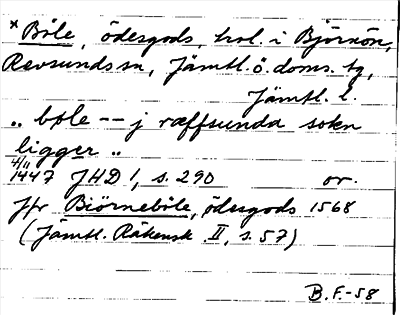 * Böle, ödesgods, trol. i Björnön,
Revsunds sn, Jämtl. ö. doms. tg,
Jämtl. l.
„ bøle -- j ræffsunda sokn
ligger „
4/11
1447 JHD 1, s. 290 or.
Jfr Biörneböle, ödesgods 1568
(Jämtl. Räkensk. II, s. 57)
B.F.-58